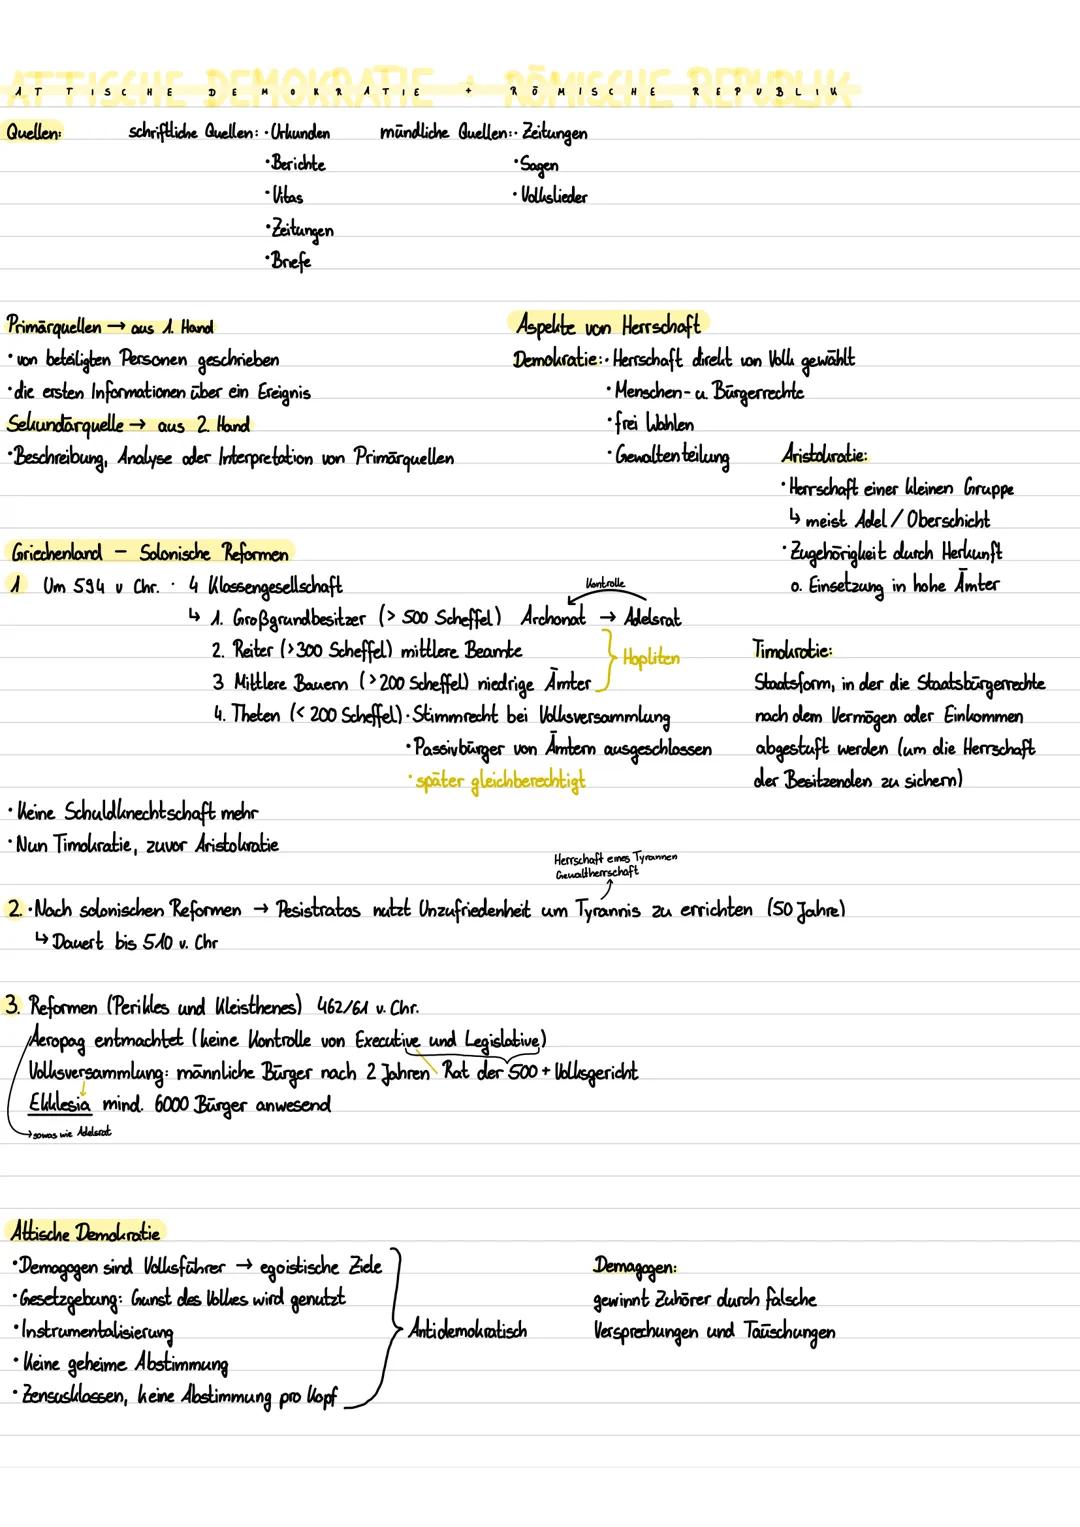 ATTISCHE DEMOKRATIE + RÖMISCHE REPUBLIK
Quellen: schriftliche Quellen: · Urkunden mündliche Quellen: · Zeitungen
· Berichte · Sagen
· Vitas · Volkslieder
· Zeitungen
· Briefe
Primärquellen → aus 1. Hand
· von beteiligten Personen geschrieben
· die ersten Informationen über ein Ereignis
Sekundärquelle → aus 2. Hand
· Beschreibung, Analyse oder Interpretation von Primärquellen
Aspekte von Herrschaft
Demokratie: · Herrschaft direkt von Volk gewählt
· Menschen- u. Bürgerrechte
· frei Wahlen
· Gewaltenteilung
Aristokratie:
· Herrschaft einer kleinen Gruppe
↳ meist Adel / Oberschicht
· Zugehörigkeit durch Herkunft
o. Einsetzung in hohe Ämter
Griechenland – Solonische Reformen
1 Um 594 v Chr. · 4 Klassengesellschaft
Kontrolle
↳ 1. Großgrundbesitzer (> 500 Scheffel) Archonat → Adelsrat
2. Reiter (>300 Scheffel) mittlere Beamte
Hopliten
3 Mittlere Bauern (>200 Scheffel) niedrige Ämter
4. Theten (< 200 Scheffel) · Stimmrecht bei Volksversammlung
· Passivbürger von Ämtern ausgeschlossen
· später gleichberechtigt
Timokratie:
Staatsform, in der die Staatsbürgerrechte
nach dem Vermögen oder Einkommen
abgestuft werden (um die Herrschaft
der Besitzenden zu sichern)
· Keine Schuldknechtschaft mehr
· Nun Timokratie, zuvor Aristokratie
Herrschaft eines Tyrannen
Gewaltherrschaft
2. · Nach solonischen Reformen → Pesistratos nutzt Unzufriedenheit um Tyrannis zu errichten (50 Jahre)
↳ Dauert bis 510 v. Chr
3. Reformen (Perikles und Kleisthenes) 462/61 v. Chr.
Aeropag entmachtet (keine Kontrolle von Executive und Legislative)
Volksversammlung: männliche Bürger nach 2 Jahren Rat der 500 + Volksgericht
Ekklesia mind. 6000 Bürger anwesend
→ sowas wie Adelsrat
Attische Demokratie
· Demagogen sind Volksführer → egoistische Ziele
· Gesetzgebung: Gunst des Volkes wird genutzt
· Instrumentalisierung
· Keine geheime Abstimmung
· Zensusklassen, keine Abstimmung pro Kopf
Antidemokratisch
Demagogen:
gewinnt Zuhörer durch falsche
Versprechungen und Täuschungen